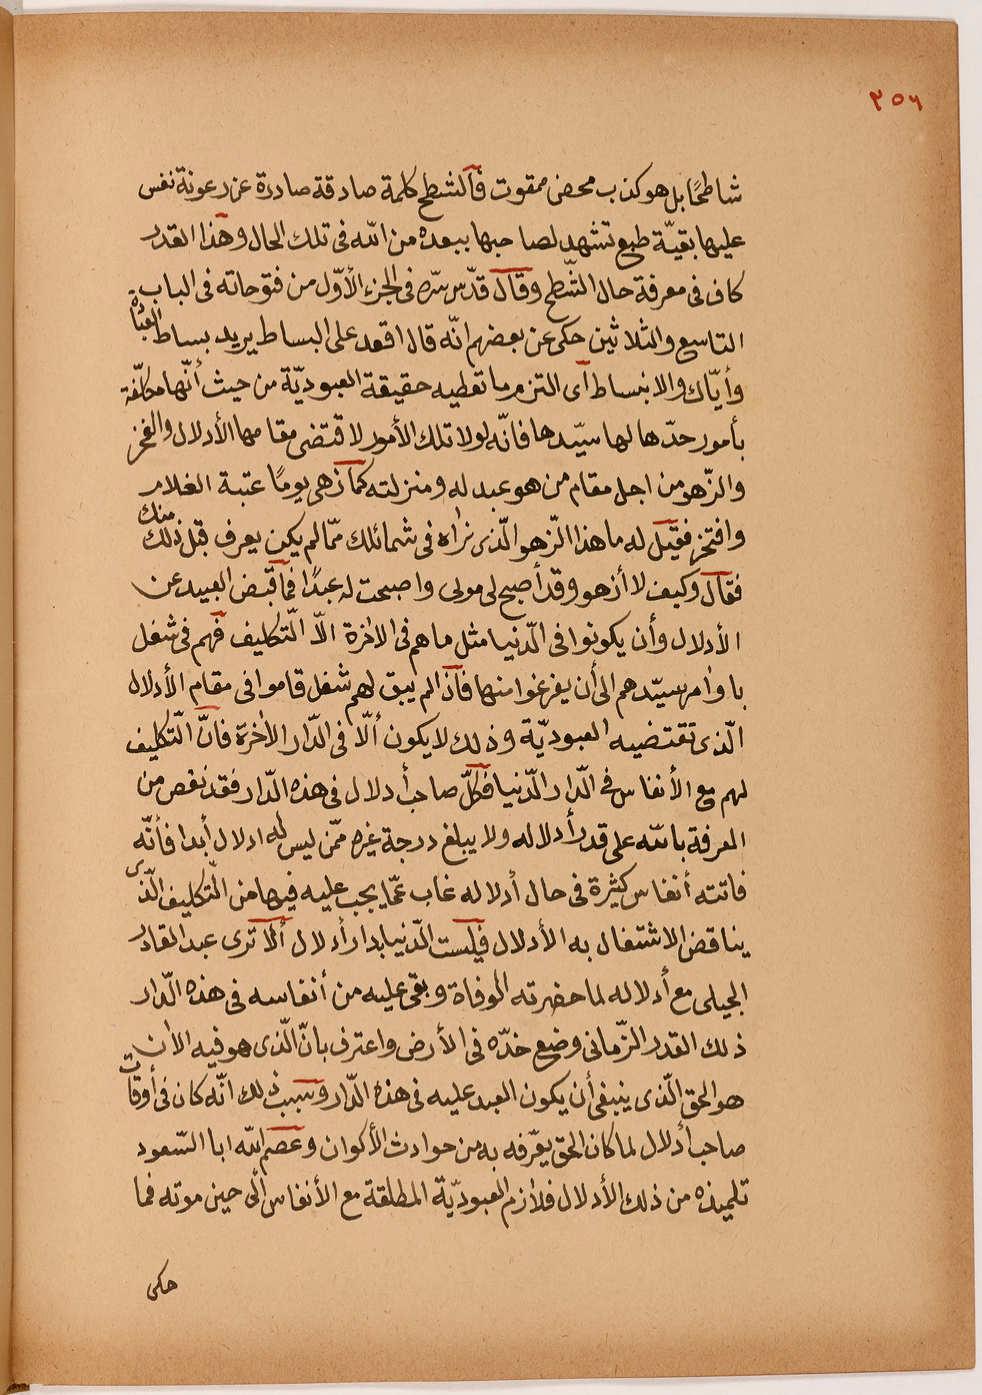 ٣٥٦
شاطحًا بل هو كذب محض ممقوت فالشطح كلمة صادقة صادرة عن رعونة نفس
عليها بقيّة طبع تشهد لصاحبها ببعده من الله فى تلك الحال وهذا القدر
كاف فى معرفة حال الشّطح وقال قدّس سّره فى الجزء الأوّل من فتوحاته فى الباب
التاسع والثلاثين حكى عن بعضهم انّه قال اقعد على البساط يريد بساط العبادة
وأيّاك والانبساط أى التزم ما تعطيه حقيقة العبوديّة من حيث أنّها مكلّفة
بأمور حدّها لها سيّدها فانّه لولا تلك الأمور لاقتضى مقامها الأدلال والفخر
والزّهو من اجل مقام من هو عبد له ومنزلته كما زهى يومًا عتبة الغلام
وافتخر فقيل له ما هذا الزّهو الّذى نراه فى شمائلك ممّا لم يكن يعرف قبل ذلك منك
فقال وكيف لا أزهو وقد أصبح لى مولى واصبحت له عبدًا فما قبض العبيد عن
الأدلال وأن يكونوا فى الدّنيا مثل ما هم فى الاخرة الاّ التّكليف فهم فى شغل
باوامر سيّدهم الى أن يفرغوا منها فاذا لم يبق لهم شغل قاموا فى مقام الأدلال
الّذى تقتضيه العبوديّة وذلك لا يكون ألاّ فى الدّار الاخرة فانّ التّكليف
لهم مع الأنفاس فى الدّار الدّنيا فكلّ صاحب أدلال فى هذه الدّار فقد نقص من
المعرفة بالله على قدر أدلاله ولا يبلغ درجة غيره ممّن ليس له ادلال أبدا فأنّه
فاتته أنفاس كثيرة فى حال أدلاله غاب عمّا يجب عليه فيها من التّكليف الّذى
يناقض الاشتغال به الأدلال فليست الدّنيا بدار أدلال ألا ترى عبد القادر
الجيلى مع أدلاله لما حضرته الوفاة وبقى عليه من أنفاسه فى هذه الدّار
ذلك القدر الزّمانى وضع خدّه فى الأرض واعترف بانّ الّذى هو فيه الان
هو الحق الّذى ينبغى أن يكون العبد عليه فى هذه الدّار وسبب ذلك انّه كان فى أوقات
صاحب أدلال لما كان الحق يعرّفه به من حوادث الأكوان وعصم الله ابا السّعود
تلميذه من ذلك الأدلال فلازم العبوديّة المطلقة مع الأنفاس الى حين موته فما
حكى